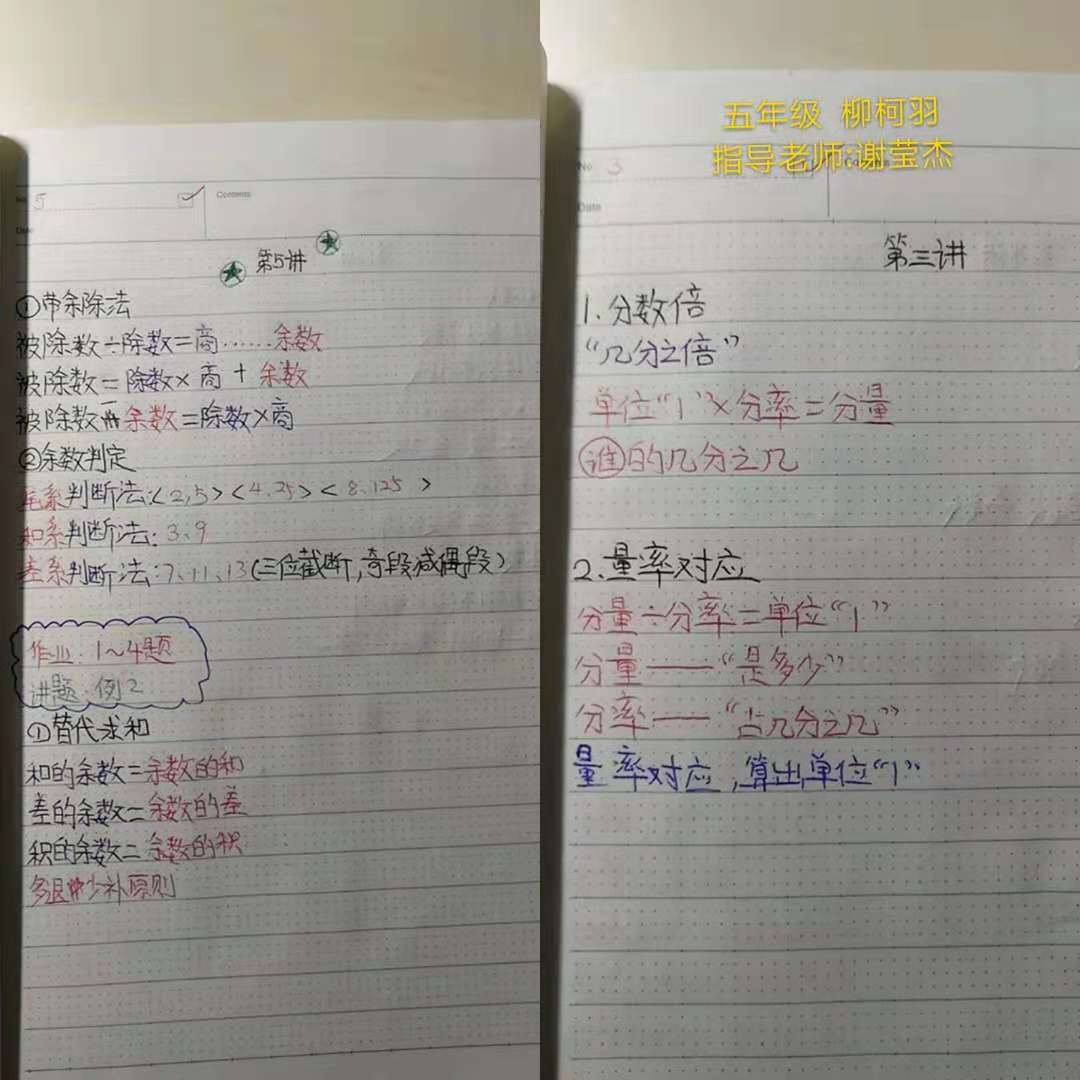 No. 5
Contents
Date
第5讲
①带余除法
被除数÷除数=商……余数
被除数=除数×商+余数
被除数-余数=除数×商
②余数判定
尾系判断法:<2,5><4、25><8、125>
和系判断法:3、9
差系判断法:7、11、13(三位截断,奇段减偶段)
作业:1~4题
讲题:例2
①替代求和
和的余数=余数的和
差的余数=余数的差
积的余数=余数的积
多退少补原则
五年级 柳柯羽
指导老师:谢莹杰
No. 3
Date
第三讲
1.分数倍
“几分之倍”
单位“1”×分率=分量
谁的几分之几
2.量率对应
分量÷分率=单位“1”
分量——“是多少”
分率——“占几分之几”
量率对应,算出单位“1”